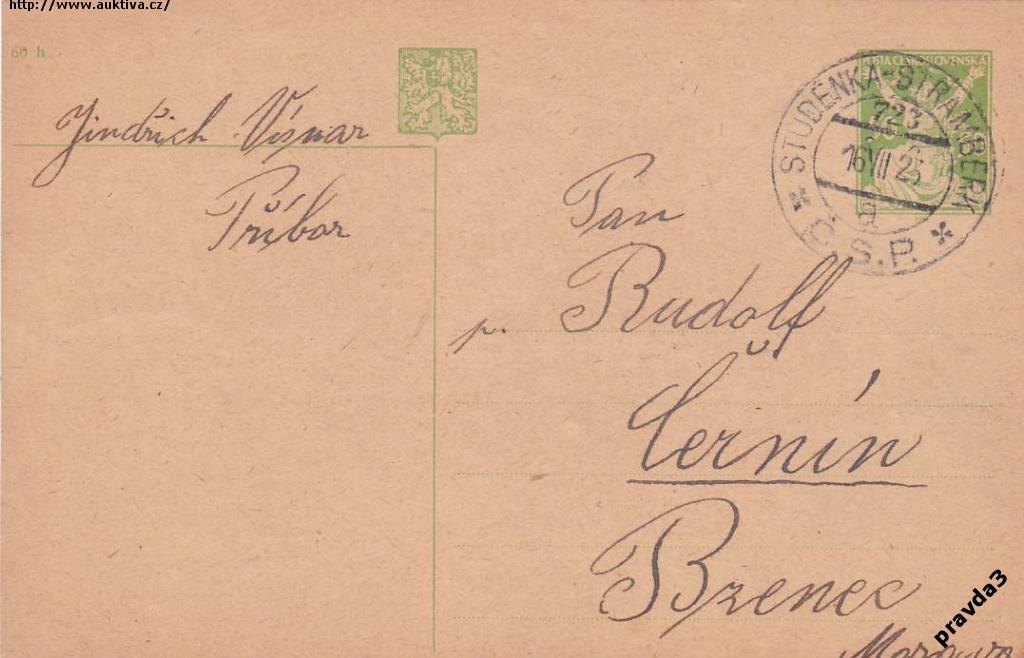 http://www.auktiva.cz/
60 h
Jindřich Vísnar
Příbor
POŠTA ČESKOSLOVENSKÁ
STUDÉNKA-ŠTRAMBERK
723
16 VII 23
Č.S.P.
Pan
p. Rudolf
Černín
Bzenec
Morava
pravda3